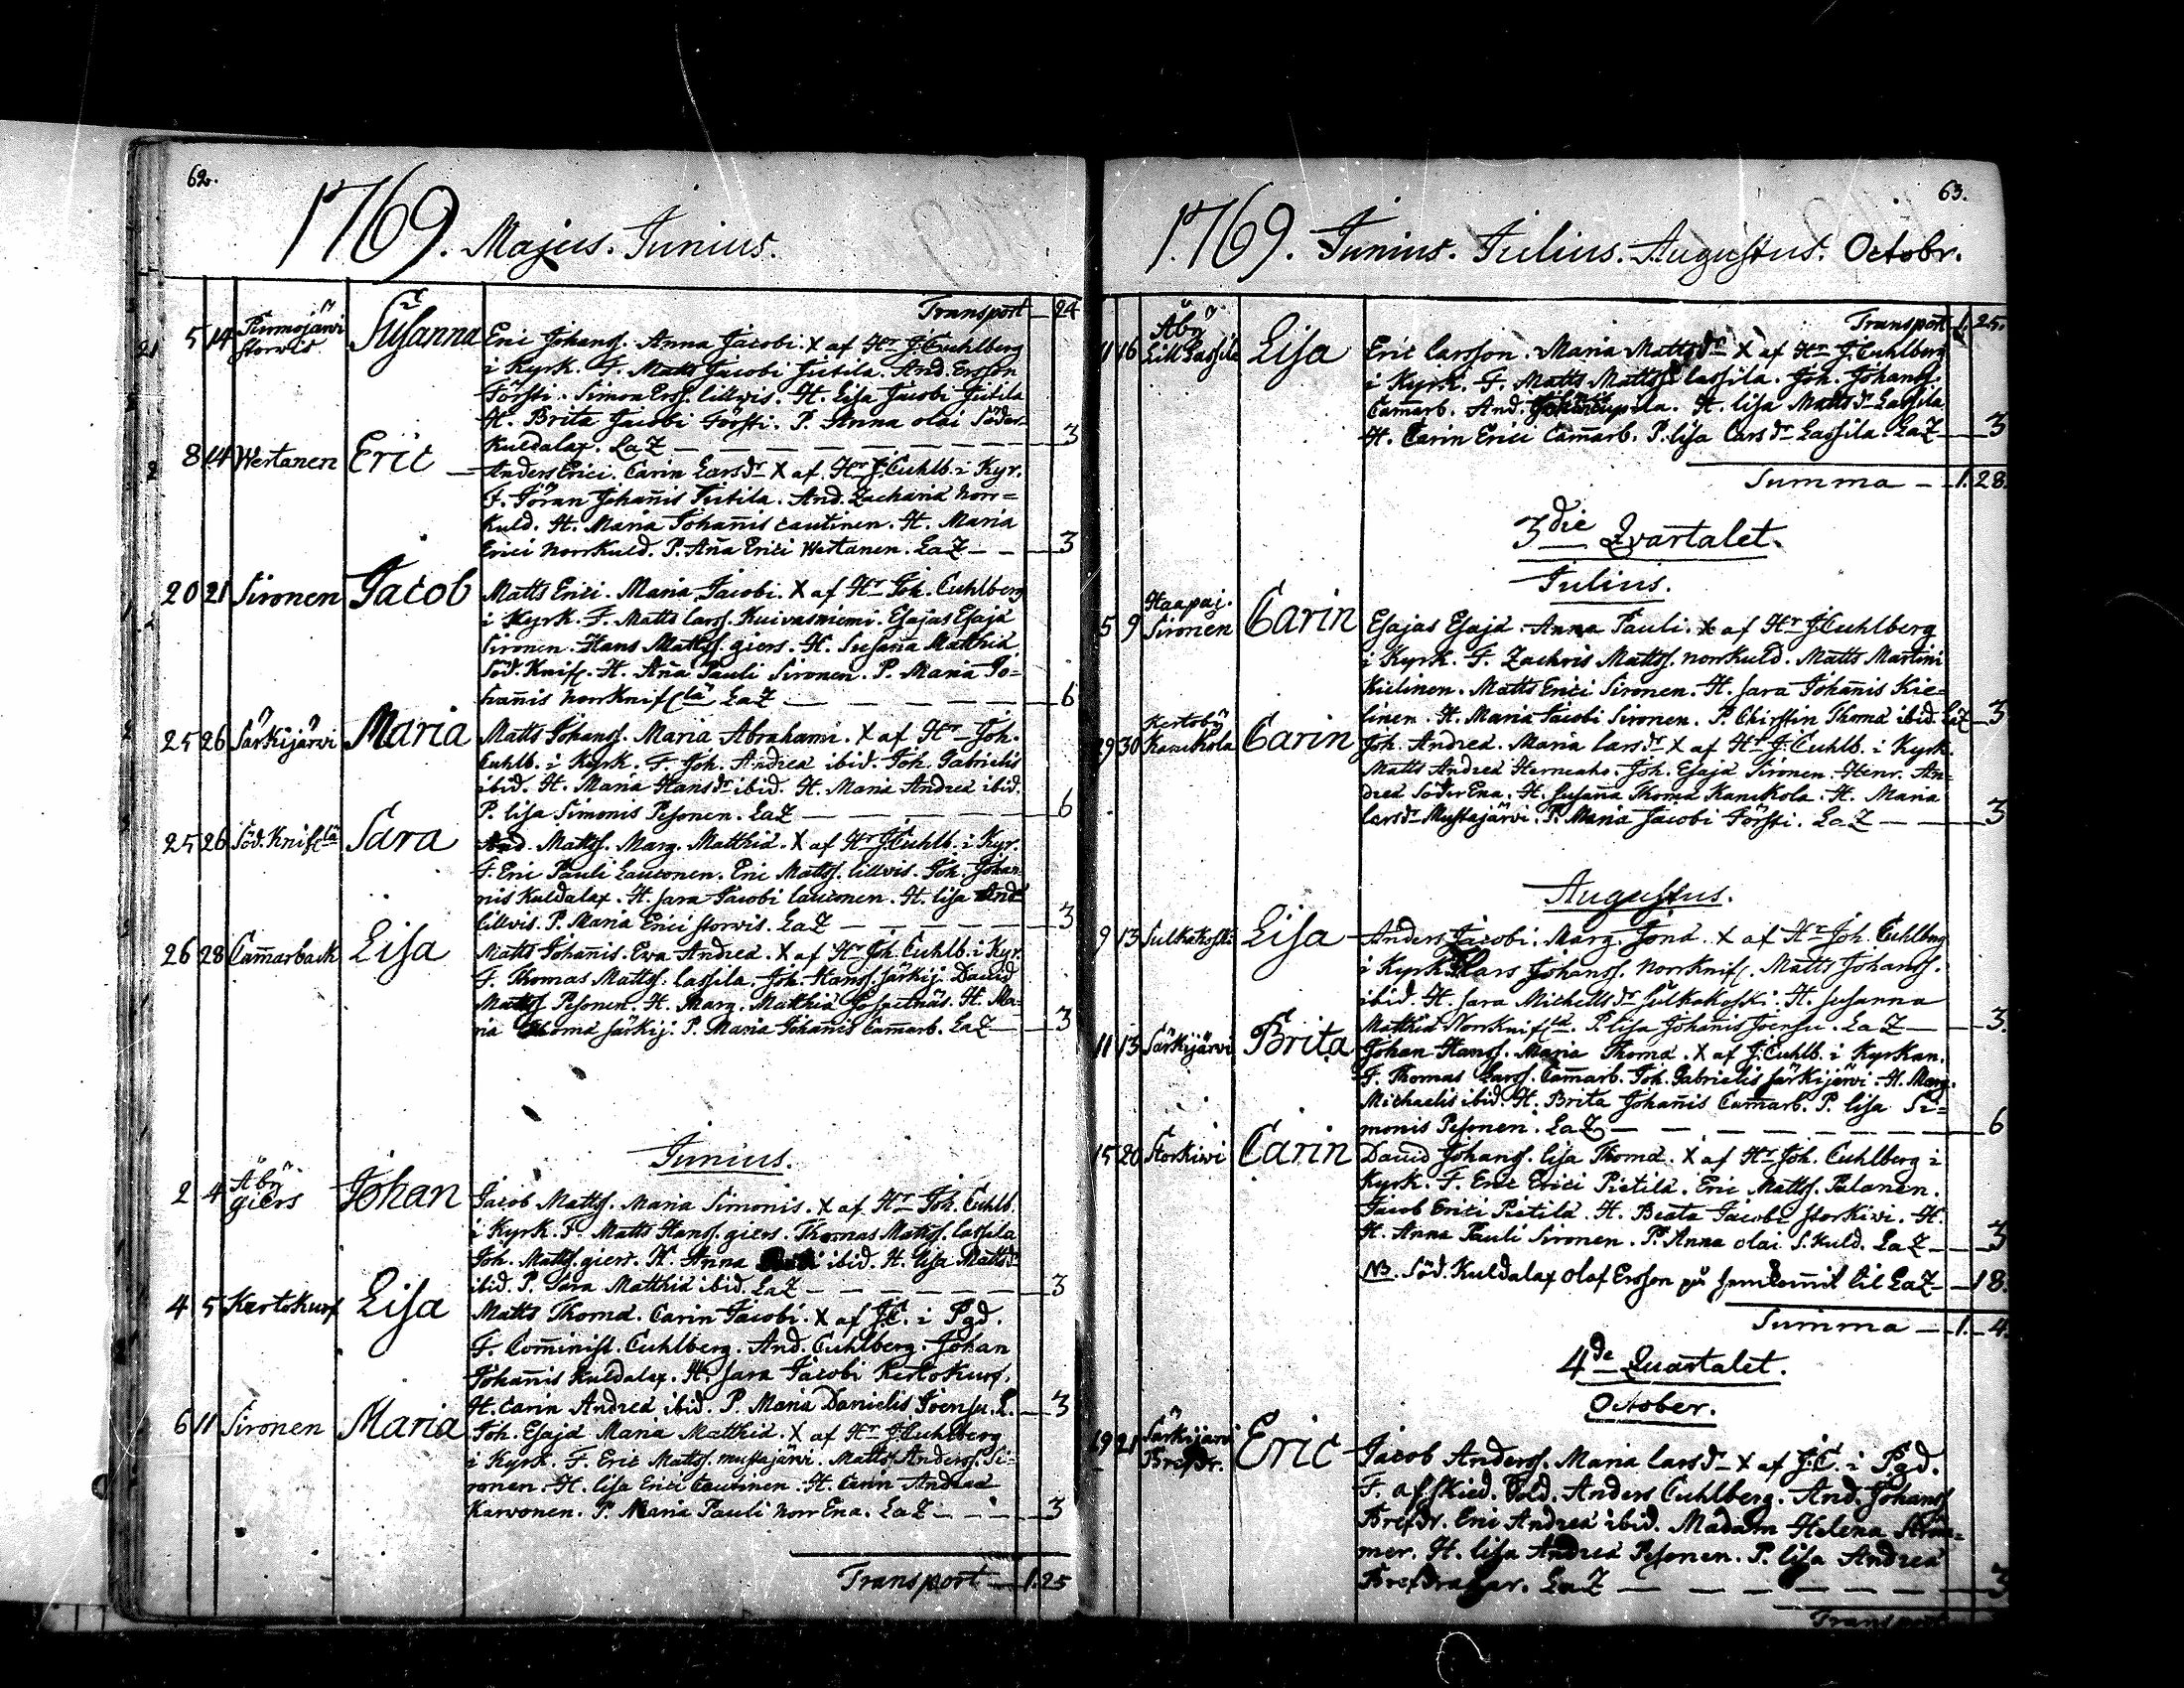 62.
1769. Majus. Junius.
Transport 24
5 14 Pirmojärwi Storwis Susanna Eric Johanss. Anna Jacobi. X af Hr J. Cuhlberg
i Kyrk. F. Matts Jacobi Jutila. And. Ersson
Försti. Simon Erss. lillwis. H. Lisa Jacobi Jutila
H. Brita Jacobi Försti. P. Anna olai Söder-
Kuldalax. LaZ 3
8 14 Wertanen Eric Anders Erici. Carin Lars dr X af. Hr J. Cuhlb. i Kyr.
F. Jöran Johañis Jutila. And. Zachariæ Norr=
Kuld. H. Maria Johañis Lautinen. H. Maria
Erici NorrKuld. P. Aña Erici Wertanen. LaZ 3
20 21 Sironen Jacob Matts Erici. Maria Jacobi. X af Hr Joh. Cuhlberg
i Kyrk. F. Matts Larss. Kuivasniemi. Esajas Esajæ
Sironen. Hans Mattss. giers. H. Susaña Matthiæ
Söd. Knif. H. Aña Pauli Sironen. P. Maria Jo=
hañis NorrKnifslä LaZ 6
25 26 Särkijärvi Maria Matts Johanss. Maria Abrahami. X af Hr Joh.
Cuhlb. i Kyrk. F. Joh. Andreæ ibid. Joh. Gabrielis
ibid. H. Maria Hans dr ibid. H. Maria Andreæ ibid.
P. lisa Simonis Pesonen. LaZ 6
25 26 Söd. Knifslä Sara And. Mattss. Marg. Matthiæ. X af Hr J. Cuhlb. i Kyr.
F. Eric Pauli Lautonen. Eric Mattss. lillvis. Joh. Johan-
nis Kuldalax. H. Sara Jacobi lautonen. H. lisa And.
Lillvis. P. Maria Erici Storvis. LaZ 3
26 28 Cam̃arback Lisa Matts Johañis. Ewa Andreæ. X af Hr Joh. Cuhlb. i Kyr.
F. Thomas Mattss. Lassila. Joh. Hanss. Särkij. David
Mattss. Pesonen. H. Marg. Matthiæ. H. Ma-
ria Thomæ Särkij. P. Maria Johañis Cam̃arb. LaZ 3
Junius.
2 4 Åby giers Johan Jacob Mattss. Maria Simonis. X af Hr Joh. Cuhlb.
i Kyrk. F. Matts Hanss. giers. Thomas Mattss. Lassila
Joh. Mattss. giers. H. Anna ibid. H. Lisa Matts dr
ibid. P. Sara Matthiæ ibid. LaZ 3
4 5 Kertokurf Lisa Matts Thomæ. Carin Jacobi. X af J.C. i Pgd.
F. Com̃inist. Cuhlberg. And. Cuhlberg. Johan
Johañis Kuldalax. H. Sara Jacobi Kertokurf.
H. Carin Andreæ ibid. P. Maria Danielis Joensu. L. 3
6 11 Sironen Maria Joh. Esajæ Maria Matthiæ. X af Hr J. Cuhlberg
i Kyrk. F. Eric Mattss. mustajärvi. Matts Anderss. Si-
ronen. H. lisa Erici Lautinen. H. Carin Andreæ
Karvonen. P. Maria Pauli Norr Ena. LaZ 3
Transport 1. 25
63.
1769. Junius. Julius. Augustus. Octobr.
Transport 1. 25.
11 16 Åby Lill Lassila Lisa Eric Larsson. Maria Matts dr X af Hr J. Cuhlberg
i Kyrk. F. Matts Mattss Lassila. Joh. Johanss.
Cam̃arb. And. H. lisa Matts dr Lassila
H. Carin Erici Cam̃arb. P. lisa Lars dr Lassila. LaZ 3
Summa 1. 28.
3die Qvartalet.
Julius.
5 9 Haapaj. Sironen Carin Esajas Esajæ. Anna Pauli. X af Hr J. Cuhlberg
i Kyrk. F. Zachris Mattss. Norrkuld. Matts Martini
Kielinen. Matts Erici Sironen. H. Sara Johañis Kie-
linen. H. Maria Jacobi Sironen. P. Chirstin Thomæ ibid. LaZ 3
29 30 Kertoby Kanikola Carin Joh. Andreæ. Maria Lars dr X af Hr J. Cuhlb. i Kyrk.
Matts Andreæ Herneaho. Joh. Esajæ Sironen. Henr. An-
dreæ Söder Ena. H. Susaña Thomæ Kanikola. H. Maria
Lars dr Mustajärvi. P. Maria Jacobi Försti. LaZ 3
Augustus.
9 13 Sulkakoski Lisa Anders Jacobi. Marg. Jonæ. X af Hr Joh. Cuhlberg
i Kyrk. Lars Johanss. Norrknif. Matts Johanss.
ibid. H. Sara Michells dr Sulkakoski. H. Susanna
Matthiæ Norrknifslä. P. lisa Johañis Joensu. LaZ 3.
11 13 Särkijärvi Brita Johan Hanss. Maria Thomæ. X af J. Cuhlb. i Kyrkan.
F. Thomas Larss. Cam̃arb. Joh. Gabrielis Särkijärvi. H. Marg.
Michaelis ibid. H. Brita Johañis Cam̃arb. P. lisa Si=
monis Pesonen. LaZ 6
15 20 Storkiwi Carin David Johanss. lisa Thomæ. X af Hr Joh. Cuhlberg i
Kyrk. F. Eric Erici Pietilä. Eric Mattss. Palanen.
Jacob Erici Pietilä. H. Beata Jacobi Storkiwi. H.
H. Anna Pauli Sironen. P. Anna olai S. Kuld. LaZ 3
NB. Söd. Kuldalax Olof Ersson på til LaZ 18.
Summa 1. 4.
4de Quartalet.
October.
19 21 Särkijärvi Brefdr. Eric Jacob Anderss. Maria Lars dr X af J.C. i Pgd.
F. afskied. Sold. Anders Cuhlberg. And. Johanss
Brefdr. Eric Andreæ ibid. Madam Helena
mer. H. lisa Andreæ Pesonen. P. lisa Andreæ
Brefdragar. LaZ 3
Transport